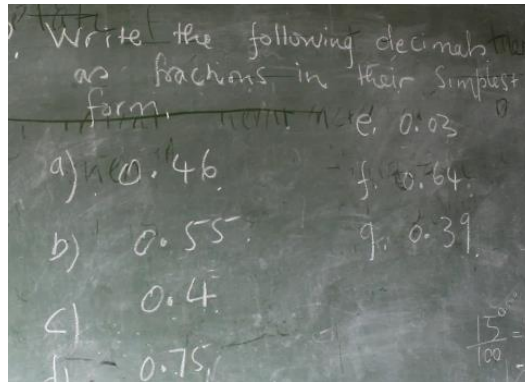 Write the following decimals
as fractions in their simplest
form.
a) 0.46
b) 0.55
c) 0.4
d) 0.75
e. 0.03
f. 0.64
g. 0.39
15
100